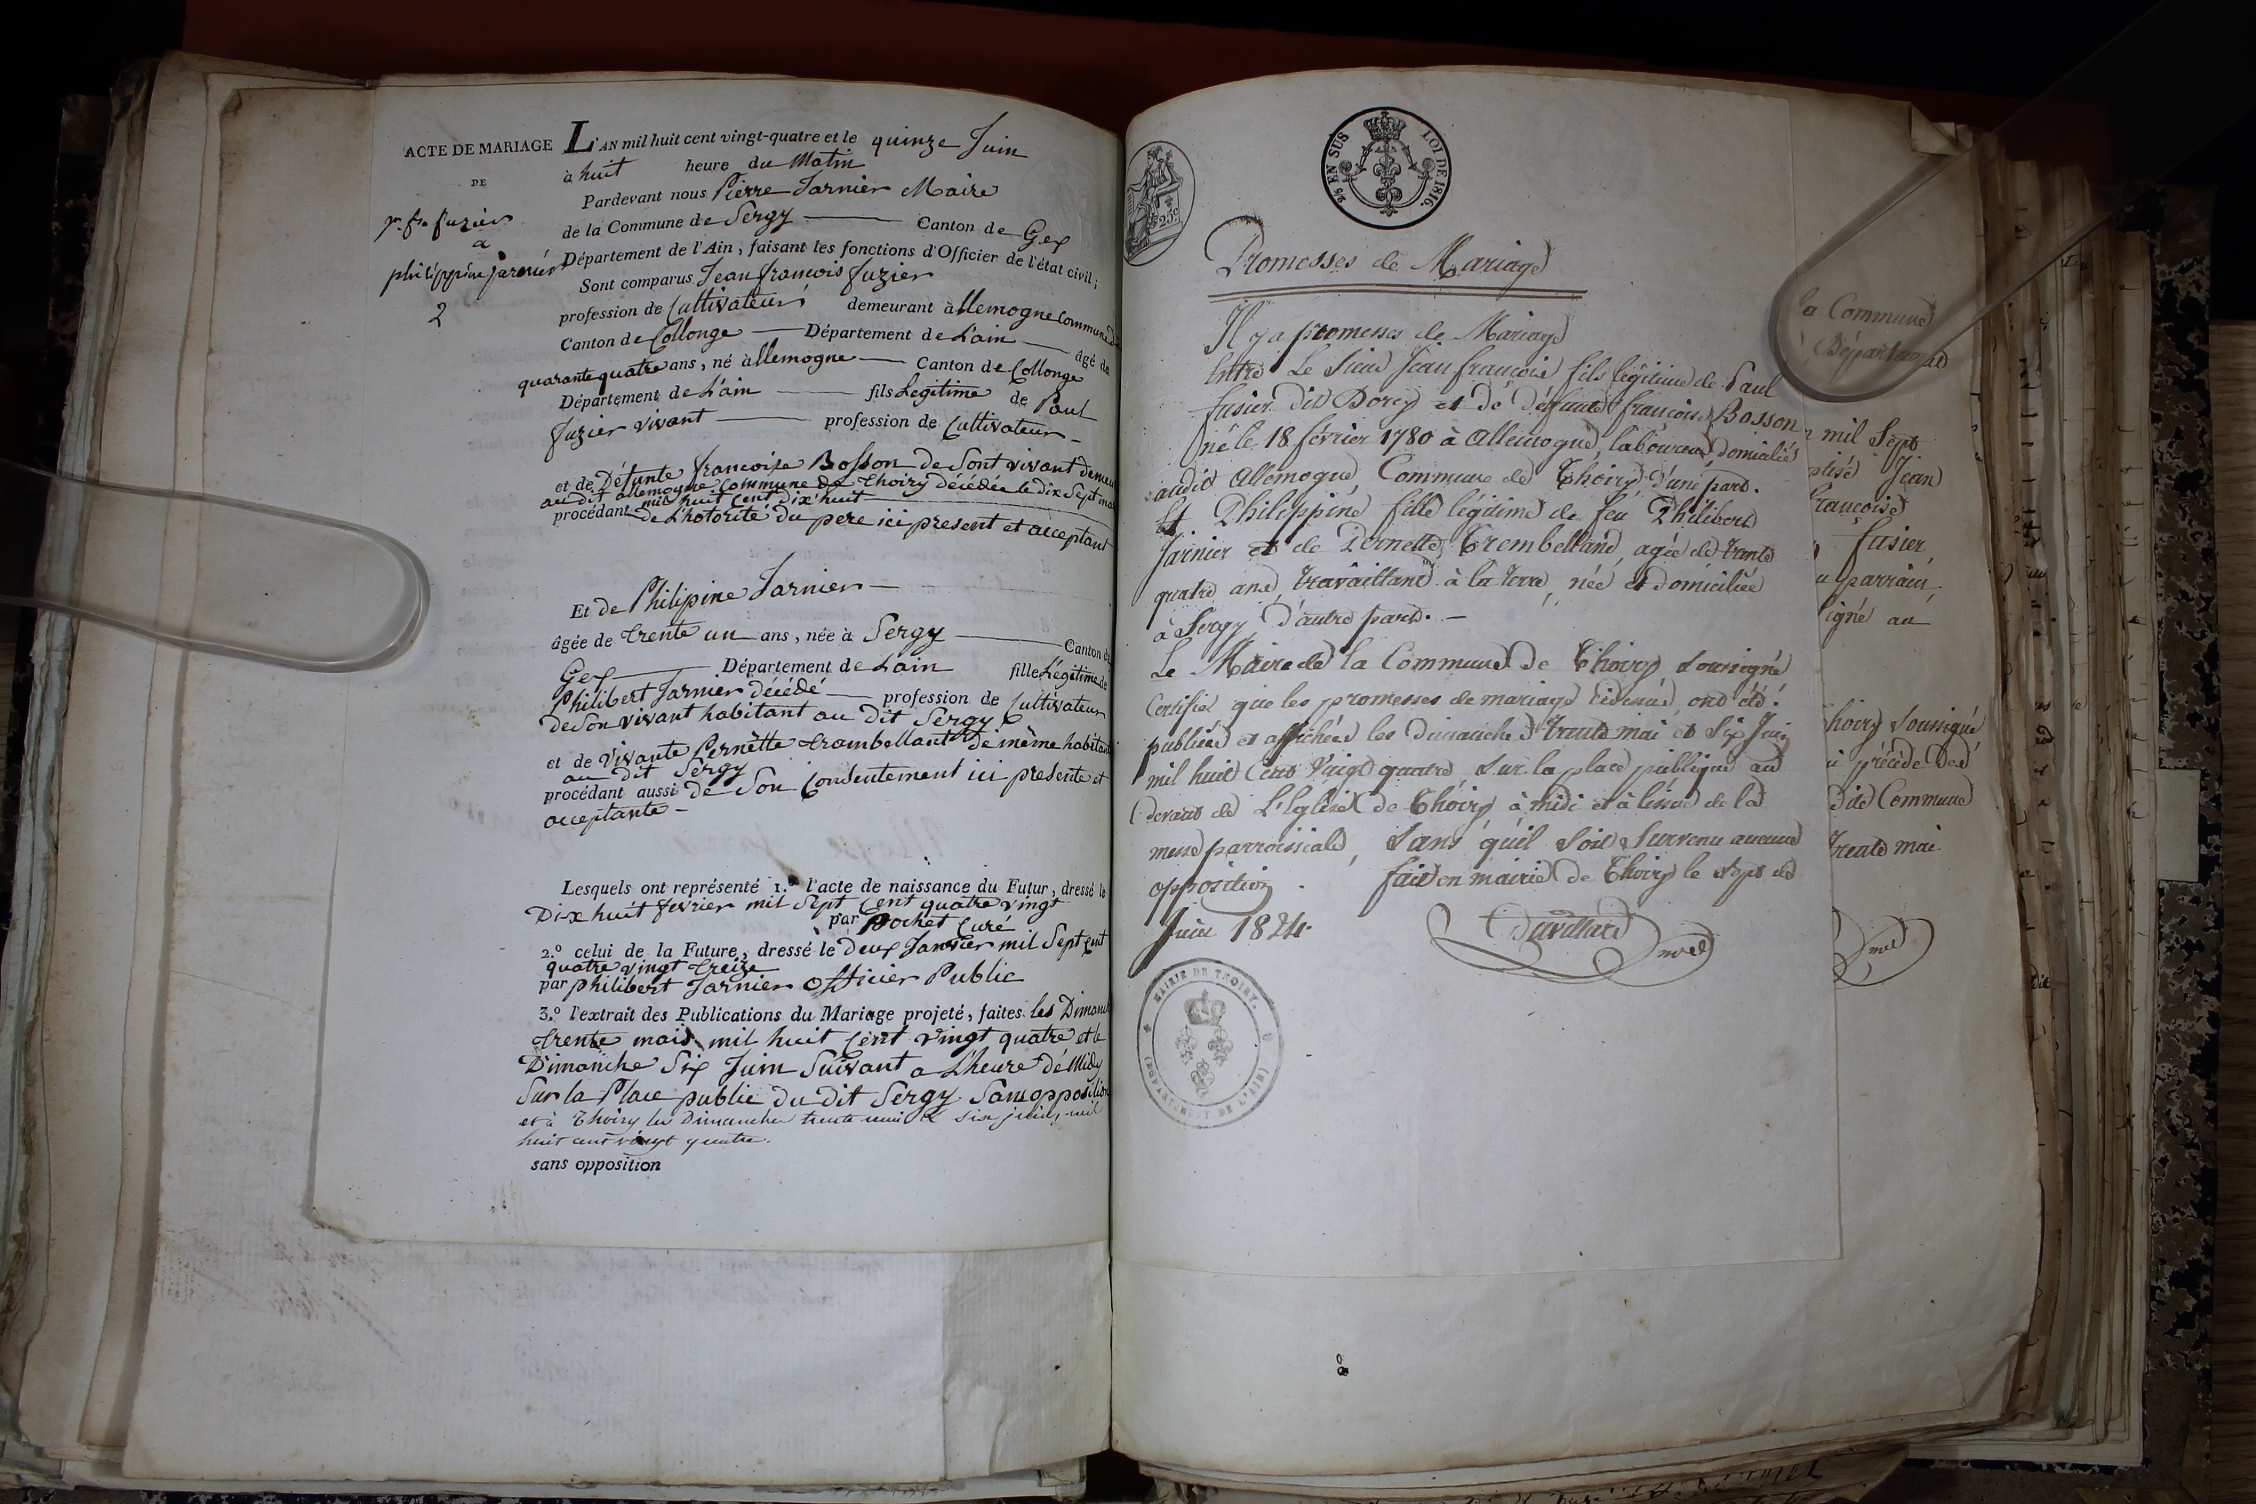 ACTE DE MARIAGE
DE
Jn. fs. fuzier
a
philippine Jarnier
2
L'AN mil huit cent vingt-quatre et le quinze Juin
à huit heure du Matin
Pardevant nous Pierre Jarnier Maire
de la Commune de Sergy Canton de Gex
Département de l'Ain, faisant les fonctions d'Officier de l'état civil;
Sont comparus Jean françois fuzier
profession de Cultivateur demeurant à allemogne Commune
Canton de Collonge Département de L'ain âgé de
quarante quatre ans, né à allemogne Canton de Collonge
Département de L'ain fils Legitime de Paul
fuzier vivant profession de Cultivateur
et de Défunte francoise Bosson de Sont vivant
au dit allemogne Commune de Thoiry décédée le dix Sept
mil huit Cent Dix huit
procédant de L'hotorité du pere ici present et acceptant
Et de Philipine Jarnier
âgée de trente un ans, née à Sergy Canton de
Gex Département de L'ain fille Légitime de
Philibert Jarnier décédé profession de Cultivateur
de Son vivant habitant au dit Sergy
et de Vivante Pernette trambellant de même habitant
au dit Sergy
procédant aussi de Son Consentement ici presente et
acceptante
Lesquels ont représenté 1.° l'acte de naissance du Futur, dressé le
Dix huit fevrier mil Sept Cent quatre vingt
par Rochet Curé
2.° celui de la Future, dressé le deux Janvier mil Sept Cent
quatre vingt treize
par philibert Jarnier officier Public
3.° l'extrait des Publications du Mariage projeté, faites les Dimanche
trente mais mil huit Cent vingt quatre et le
Dimanche Six Juin Suivant a L'heure dé Midy
Sur la Place public du dit Sergy Sans opposition
et à Thoiry les Dimanches trente mai & six juin, mil
huit cent vingt quatre.
sans opposition
2/10 EN SUS LOI DE 1816.
25c
Promesses de Mariage
Il y a promesses de Mariage
Entre Le Sieur Jean françois fils légitime de Paul
fusier dit Dorey et de défunte françoise Bosson
né le 18 février 1780 à Allemogne, laboureur domicilié
audit Allemogne Commune de Thoiry d'une part.
Et Philippine fille légitime de feu Philibert
Jarnier et de Pernette Trembelland agée de trente
quatre ans, travaillant à la terre, née et domiciliée
à Sergy d'autre part.
Le Maire de la Commune de Thoiry Soussigné
Certifie que les promesses de mariage cidessus, ont été
publiées et affichées les dimanches trente mai et Six Juin
mil huit Cent vingt quatre Sur la place publique au
devant de L'Eglise de Thoiry à midi et à l'issue de la
messe parroissiale, Sans qu'il Soit Survenu aucune
opposition. fait en mairie de Thoiry le sept de
Juin 1824.
MAIRIE DE THOIRY.
(DEPARTEMENT DE L'AIN)
la Commune
Département
mil Sept
Jean
françoise
fusier
parrain
signé au
Thoiry Soussigné
précède des
dite Commune
trente mai